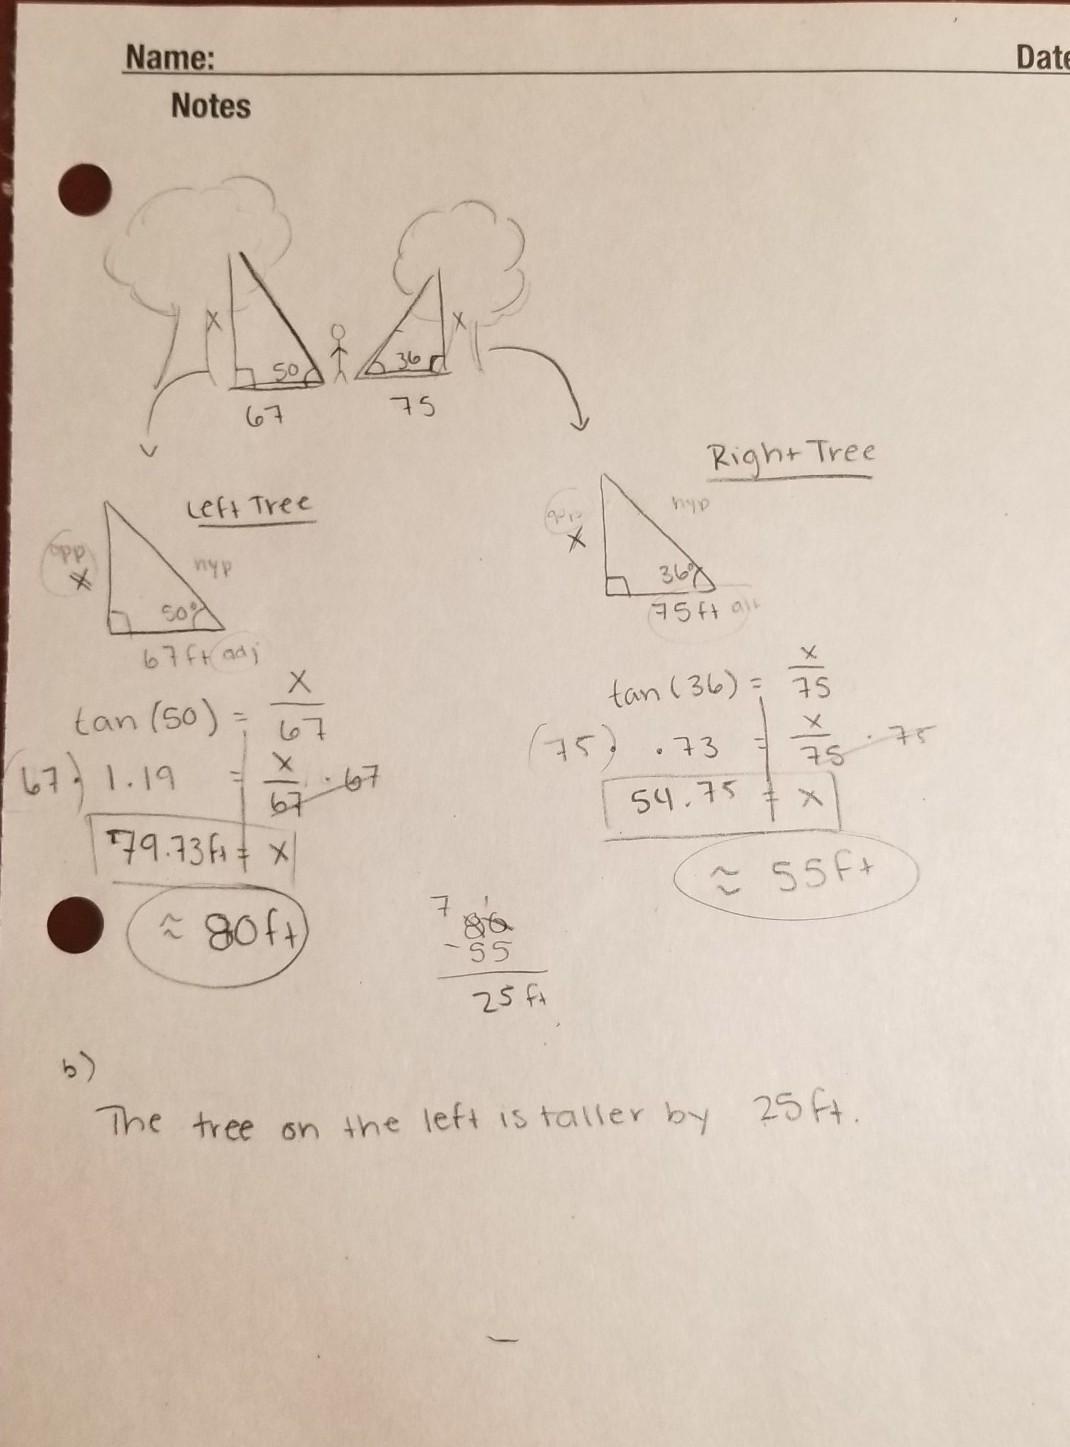 Name:
Date
Notes
x
50
67
36
x
75
Left Tree
opp
x
hyp
50°
67ft adj
tan (50) = x/67
(67·) 1.19 = x/67 · 67
79.73ft = x
≈ 80ft
Right Tree
opp
x
hyp
36°
75ft
tan (36) = x/75
(75·) .73 = x/75 · 75
54.75 = x
≈ 55ft
7 1
80
-55
25 ft
b)
The tree on the left is taller by 25ft.